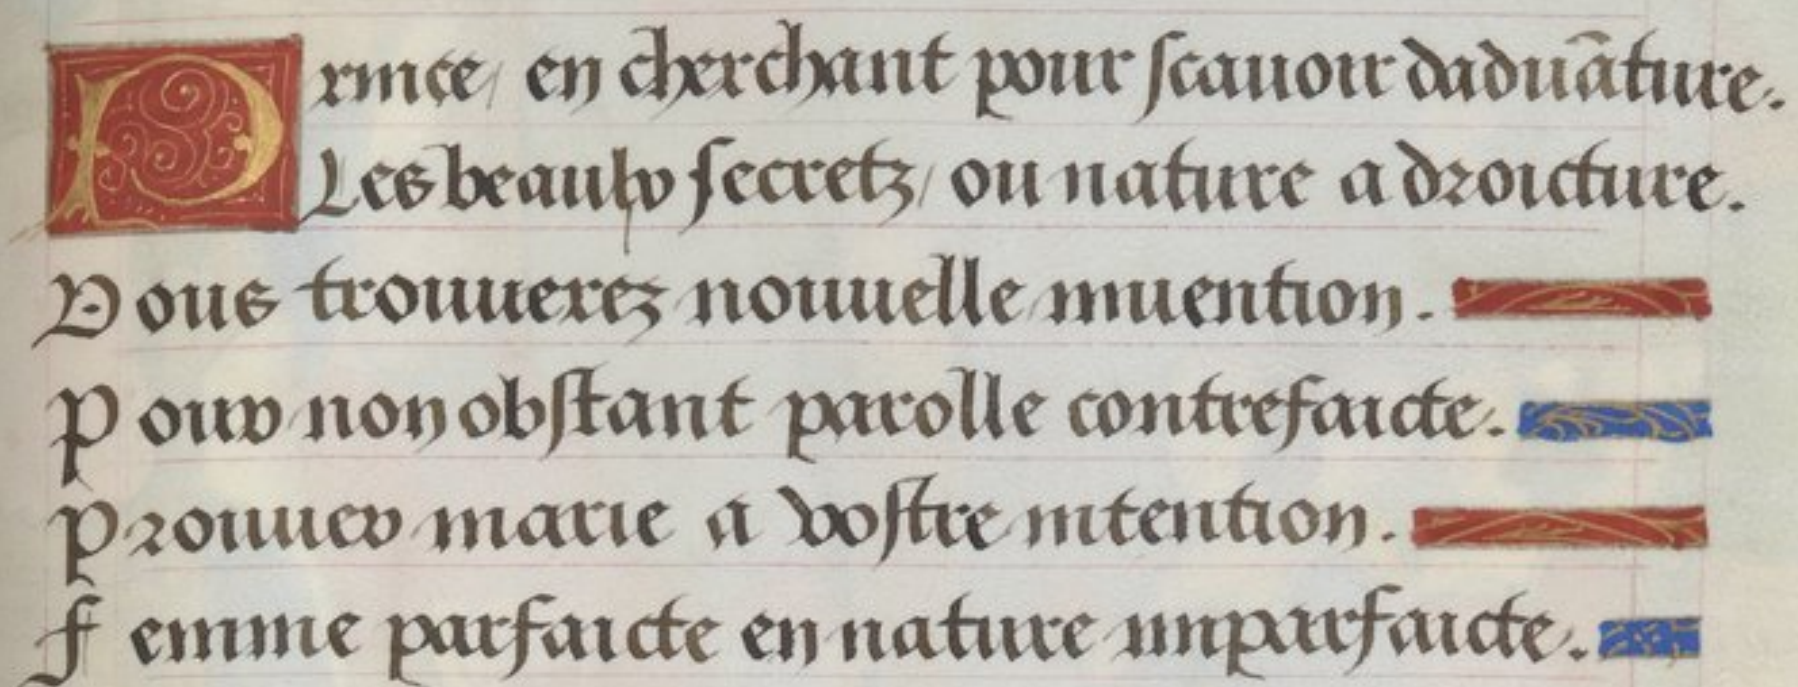 Prince, en cherchant pour scauoir daduãture.
Les beaulx secretz, ou nature a droicture.
Vous trouuerez nouuelle inuention.
Pour non obstant parolle contrefaicte.
Prouuer marie a vostre intention.
Femme parfaicte en nature imparfaicte.